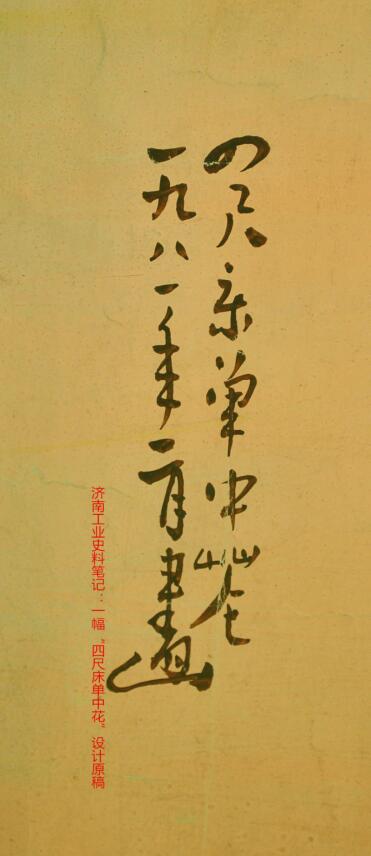 四尺床单中花
一九八一年二月画
济南工业史料笔记：一幅“四尺床单中花”设计原稿